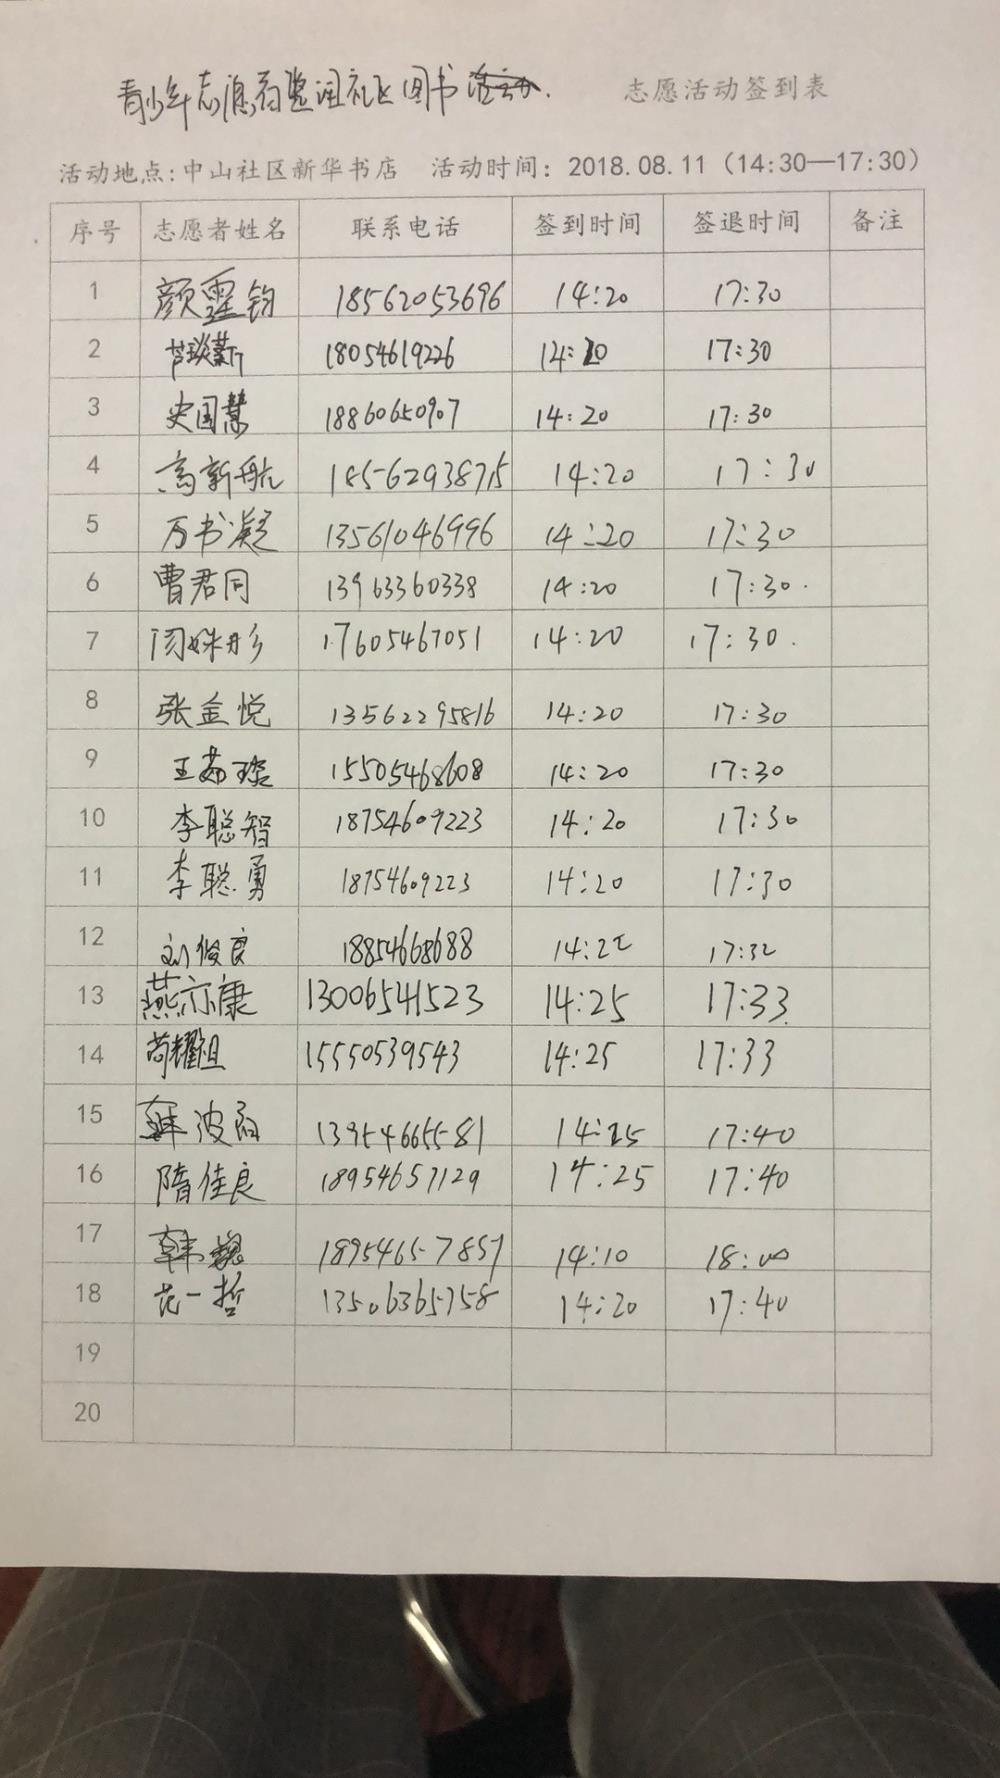 青少年志愿者整理社区图书 志愿活动签到表
活动地点:中山社区新华书店 活动时间: 2018.08.11 (14:30—17:30)
序号 志愿者姓名 联系电话 签到时间 签退时间 备注
1 颜霆钧 18562053696 14:20 17:30
2 18054619226 14:20 17:30
3 史国慧 18860650907 14:20 17:30
4 高新航 18562938715 14:20 17:30
5 万书凝 13561046996 14:20 17:30
6 曹君同 13963360338 14:20 17:30
7 闫姝彤 17605467051 14:20 17:30
8 张金悦 13562295816 14:20 17:30
9 王茹琛 15505468608 14:20 17:30
10 李聪智 18754609223 14:20 17:30
11 李聪勇 18754609223 14:20 17:30
12 刘俊良 18854668688 14:22 17:32
13 燕亦康 13006541523 14:25 17:33
14 苟耀祖 15550539543 14:25 17:33
15 13954665581 14:25 17:40
16 隋佳良 18954657129 14:25 17:40
17 韩 18954657857 14:10 18:00
18 范一哲 13506365758 14:20 17:40
19
20